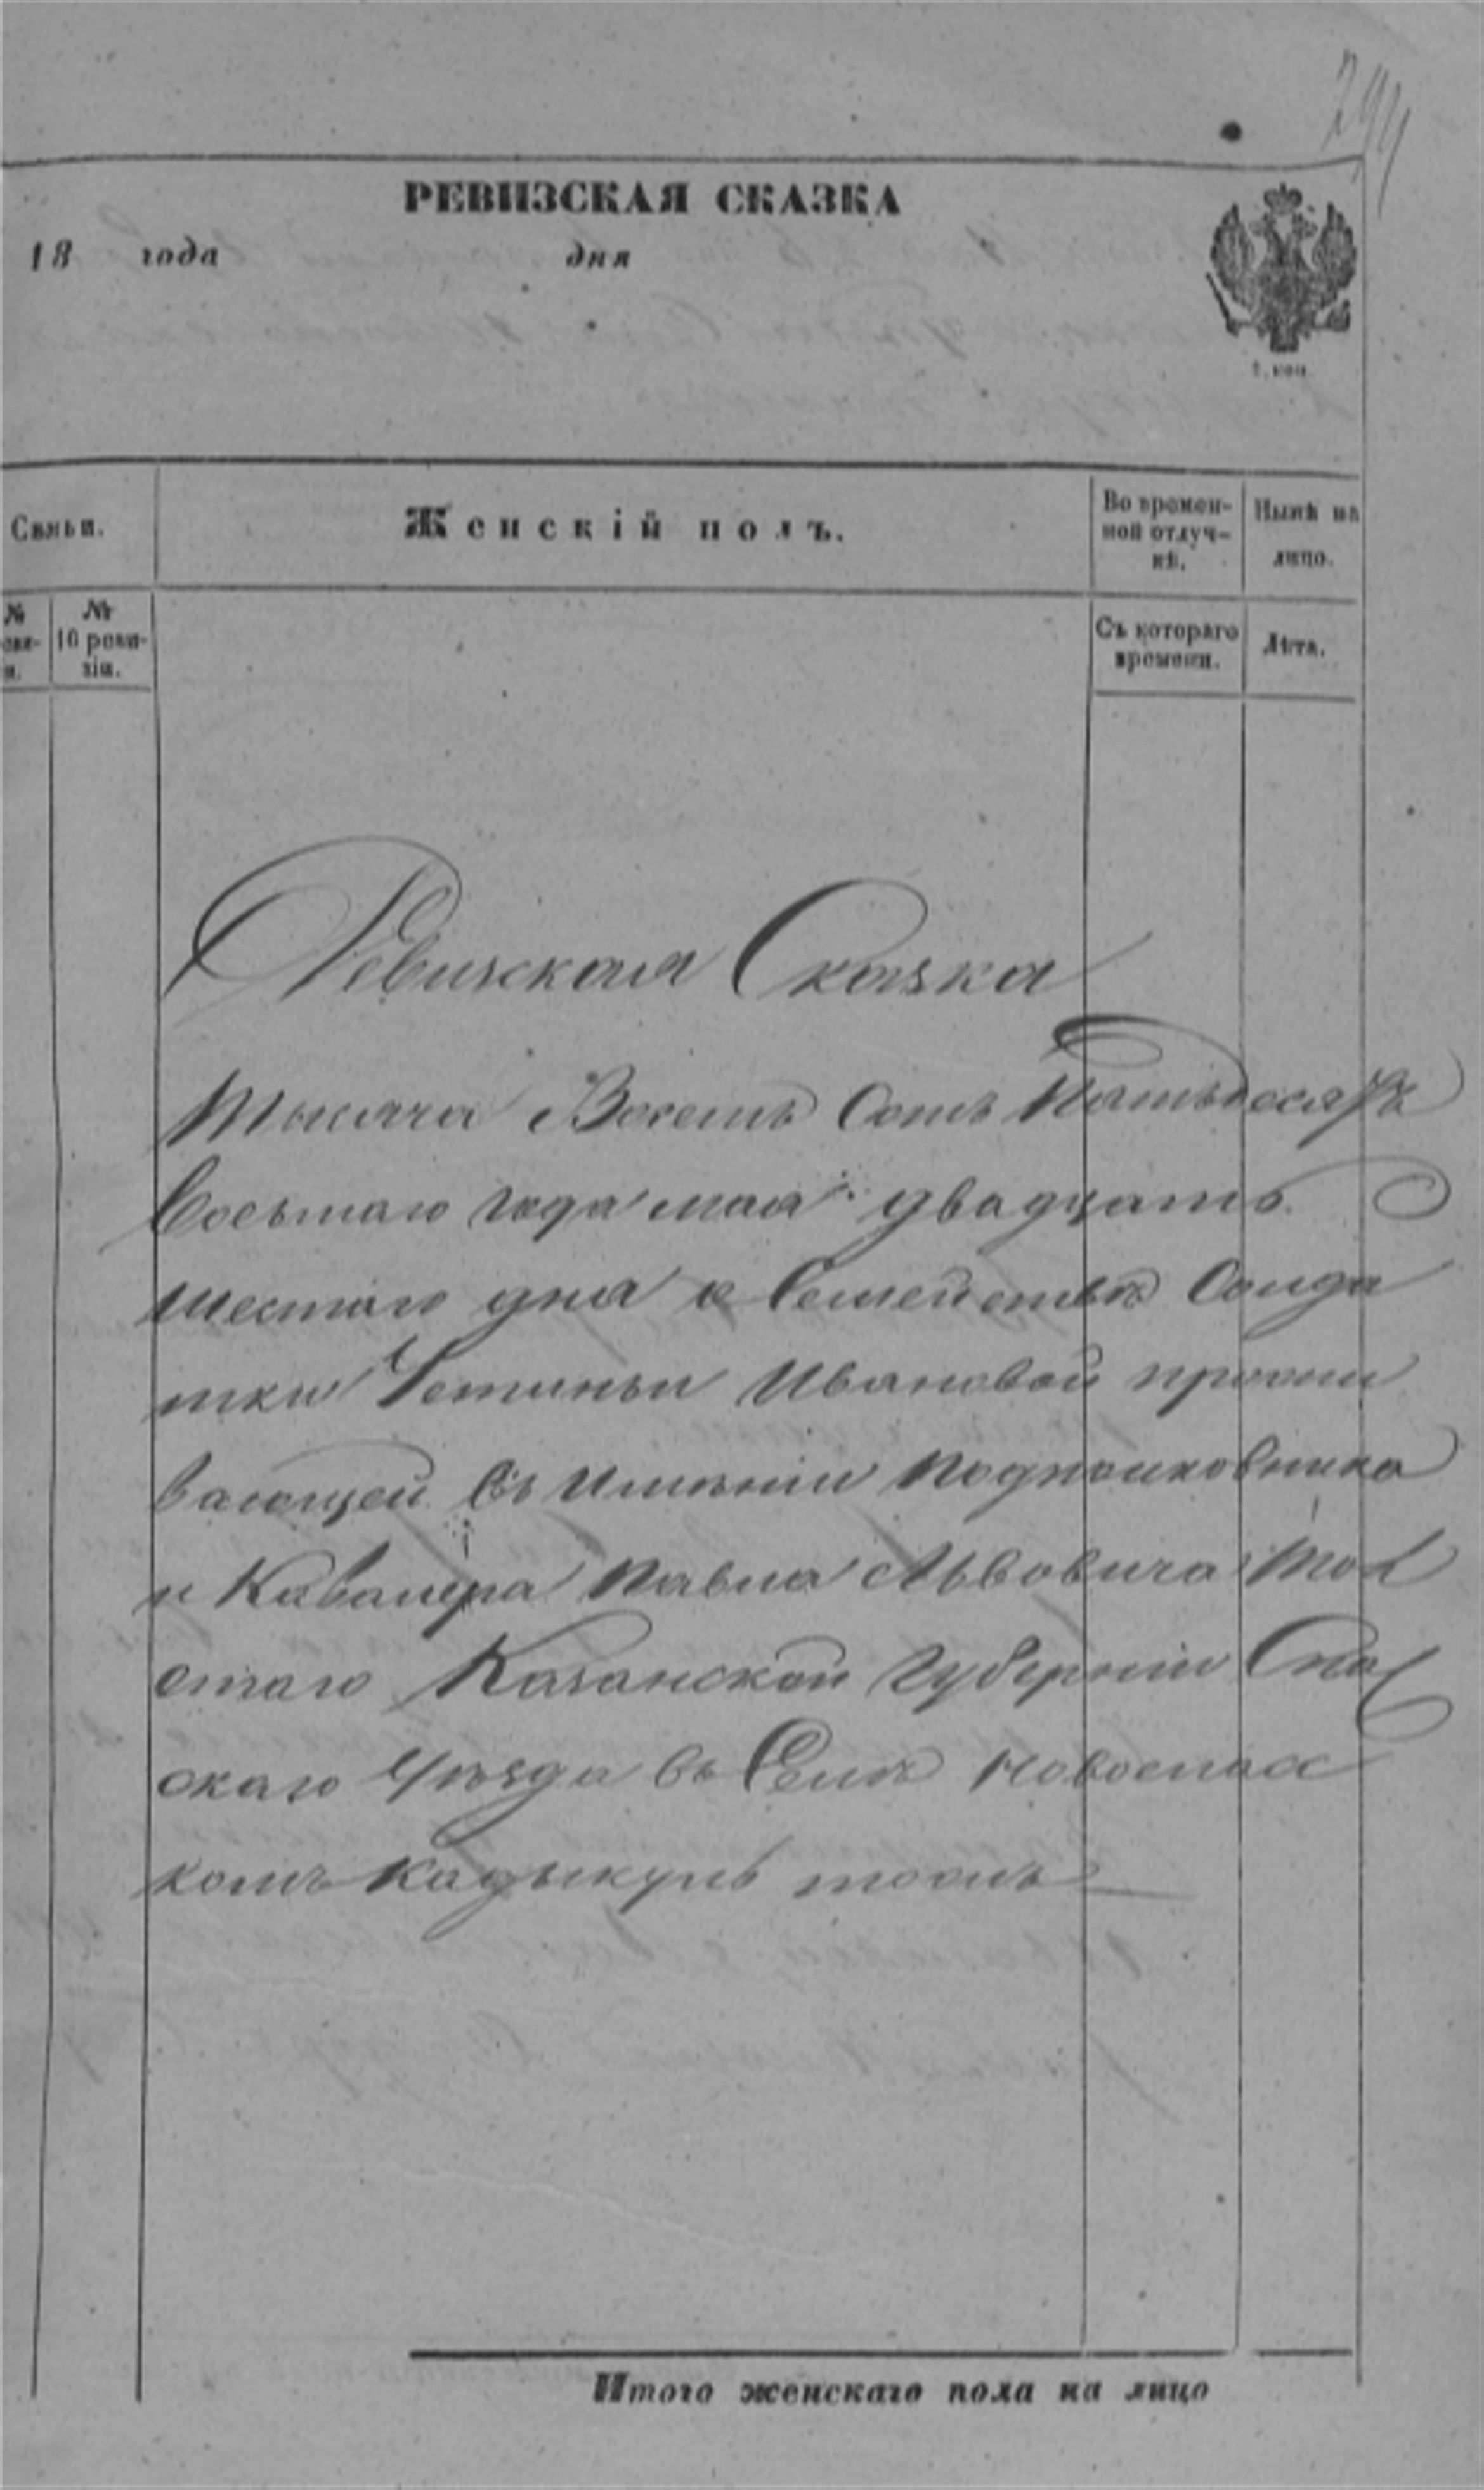 294
РЕВИЗСКАЯ СКАЗКА
18 года дня
1. коп.
Семьи. Женскій полъ. Во времен-
ной отлуч-
кѣ. Нынѣ на
лицо.
№
10 реви-
зіи. Съ котораго
времени. Лѣта.
Ревизская Сказка
тысяча Восемь Сотъ Пятьдесятъ
Восьмаго года мая двадцать
шестаго дня о Семействѣ Солда
тки Устиньи Ивановой прожи
вающей Въ Имѣніи подполковника
и Кавалера Павла Львовича Тол
стаго Казанской Губерніи Спас
скаго Уѣзда въ Селѣ Новоспасс
комъ Кадыкуль тожъ
Итого женскаго пола на лицо